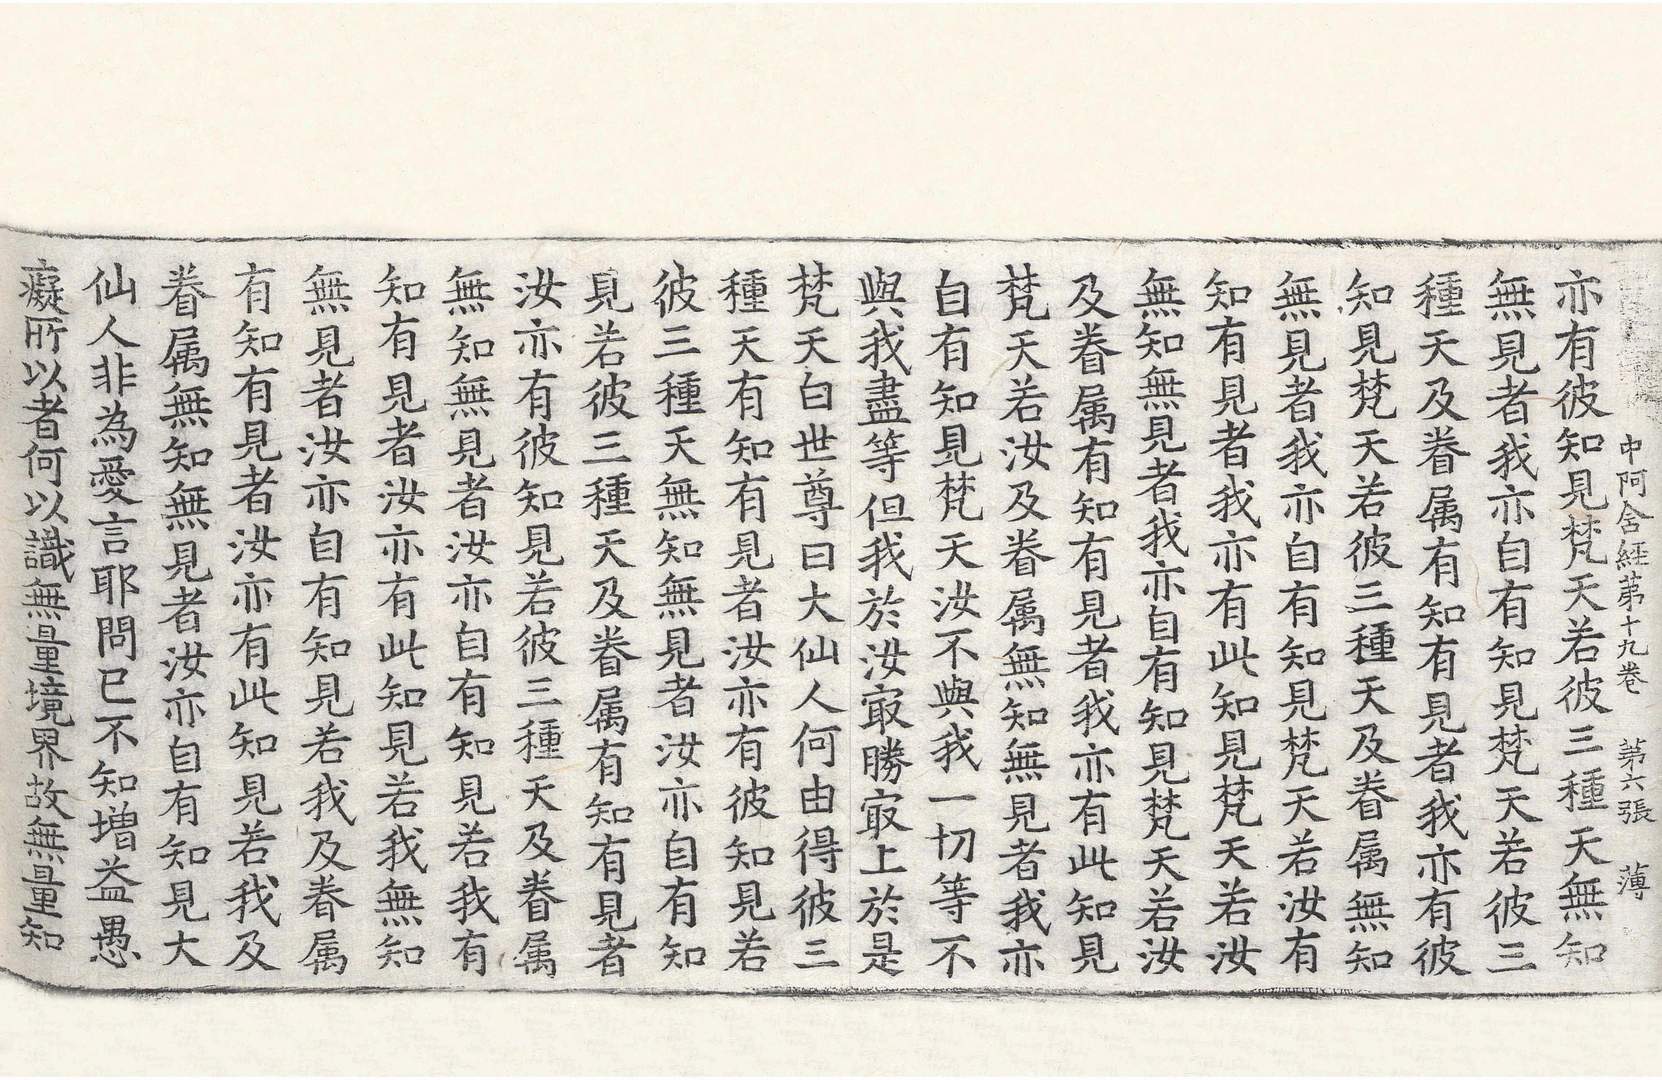 中阿含經第十九卷 第六張 薄
亦有彼知見梵天若彼三種天無知
無見者我亦自有知見梵天若彼三
種天及眷属有知有見者我亦有彼
知見梵天若彼三種天及眷属無知
無見者我亦自有知見梵天若汝有
知有見者我亦有此知見梵天若汝
無知無見者我亦自有知見梵天若汝
及眷属有知有見者我亦有此知見
梵天若汝及眷属無知無見者我亦
自有知見梵天汝不與我一切等不
與我盡等但我於汝㝡勝㝡上於是
梵天白世尊曰大仙人何由得彼三
種天有知有見者汝亦有彼知見若
彼三種天無知無見者汝亦自有知
見若彼三種天及眷属有知有見者
汝亦有彼知見若彼三種天及眷属
無知無見者汝亦自有知見若我有
知有見者汝亦有此知見若我無知
無見者汝亦自有知見若我及眷属
有知有見者汝亦有此知見若我及
眷属無知無見者汝亦自有知見大
仙人非為愛言耶問已不知增益愚
癡所以者何以識無量境界故無量知